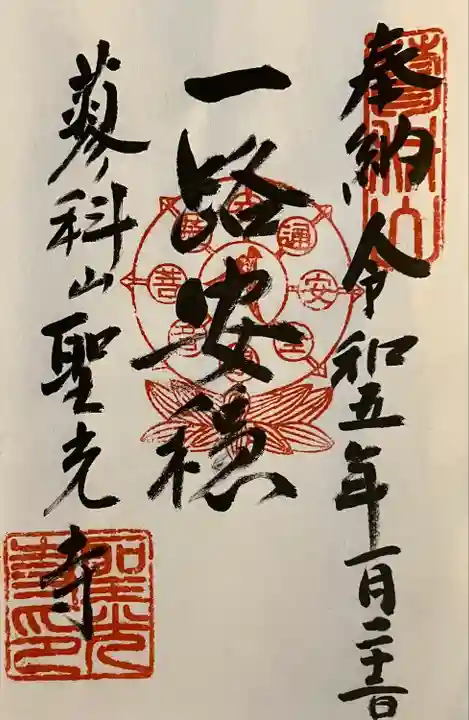 奉納 令和五年一月二十三日
蓼科山
一路安穏
通
安
全
音
菩
蓼科山聖光寺
聖光寺印